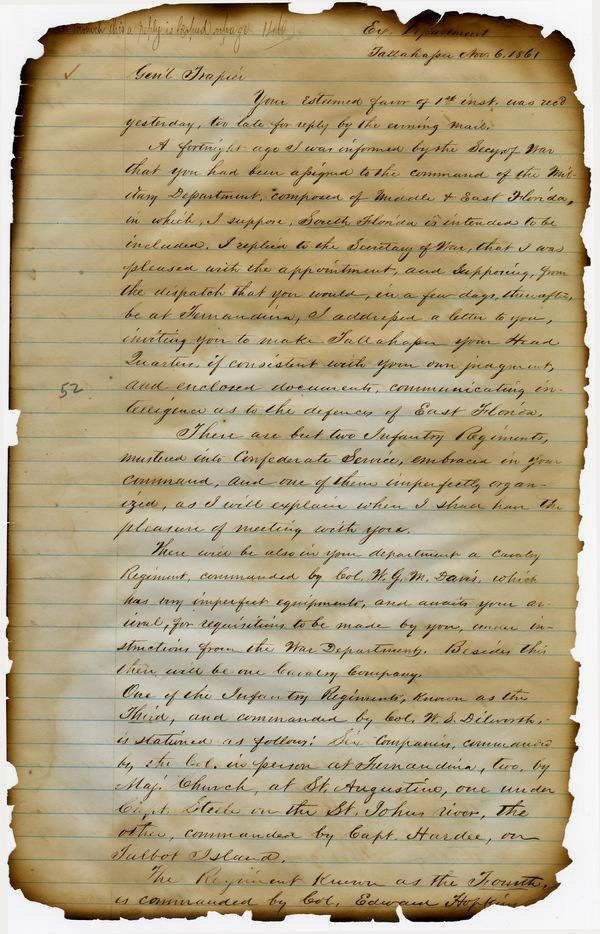 which this a reply is copied on page
Ex. Department
Tallahassee Nov. 6, 1861
Gen'l Trapier
Your esteemed favor of 1st inst. was rec'd
yesterday, too late for reply by the evening mail.
A fortnight ago I was informed by the Secy of War
that you had been assigned to the command of the Mil-
itary Department, composed of Middle & East Florida,
in which, I suppose, South Florida is intended to be
included. I replied to the Secretary of War, that I was
pleased with the appointment, and supposing, from
the dispatch that you would, in a few days, thereafter,
be at Fernandina, I addressed a letter to you,
inviting you to make Tallahassee your Head
Quarters, if consistent with your own judgment,
52
and enclosed documents, communicating in-
telligence as to the defences of East Florida.
There are but two Infantry Regiments,
mustered into Confederate Service, embraced in your
command, and one of them imperfectly organ-
ized, as I will explain when I shall have the
pleasure of meeting with you.
There will be also in your department a Cavalry
Regiment, commanded by Col. W. G. M. Davis, which
has very imperfect equipments, and awaits your ar-
rival, for requisitions to be made by you, under in-
structions from the War Department. Besides this
there will be one Cavalry Company.
One of the Infantry Regiments, known as the
Third, and commanded by Col. W. S. Dilworth,
is stationed as follows: Six Companies, commanded
by the Col. in person at Fernandina, two, by
Maj. Church, at St. Augustine, one under
Capt. Steele on the St. Johns river, the
other, commanded by Capt. Hardee, on
Talbot Island.
The Regiment known as the Fourth,
is commanded by Col. Edward Hopkins